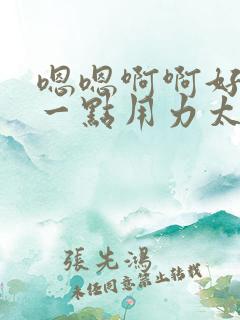 嗯嗯啊啊好
一點用力太
張先鴻
未經同意禁止轉載